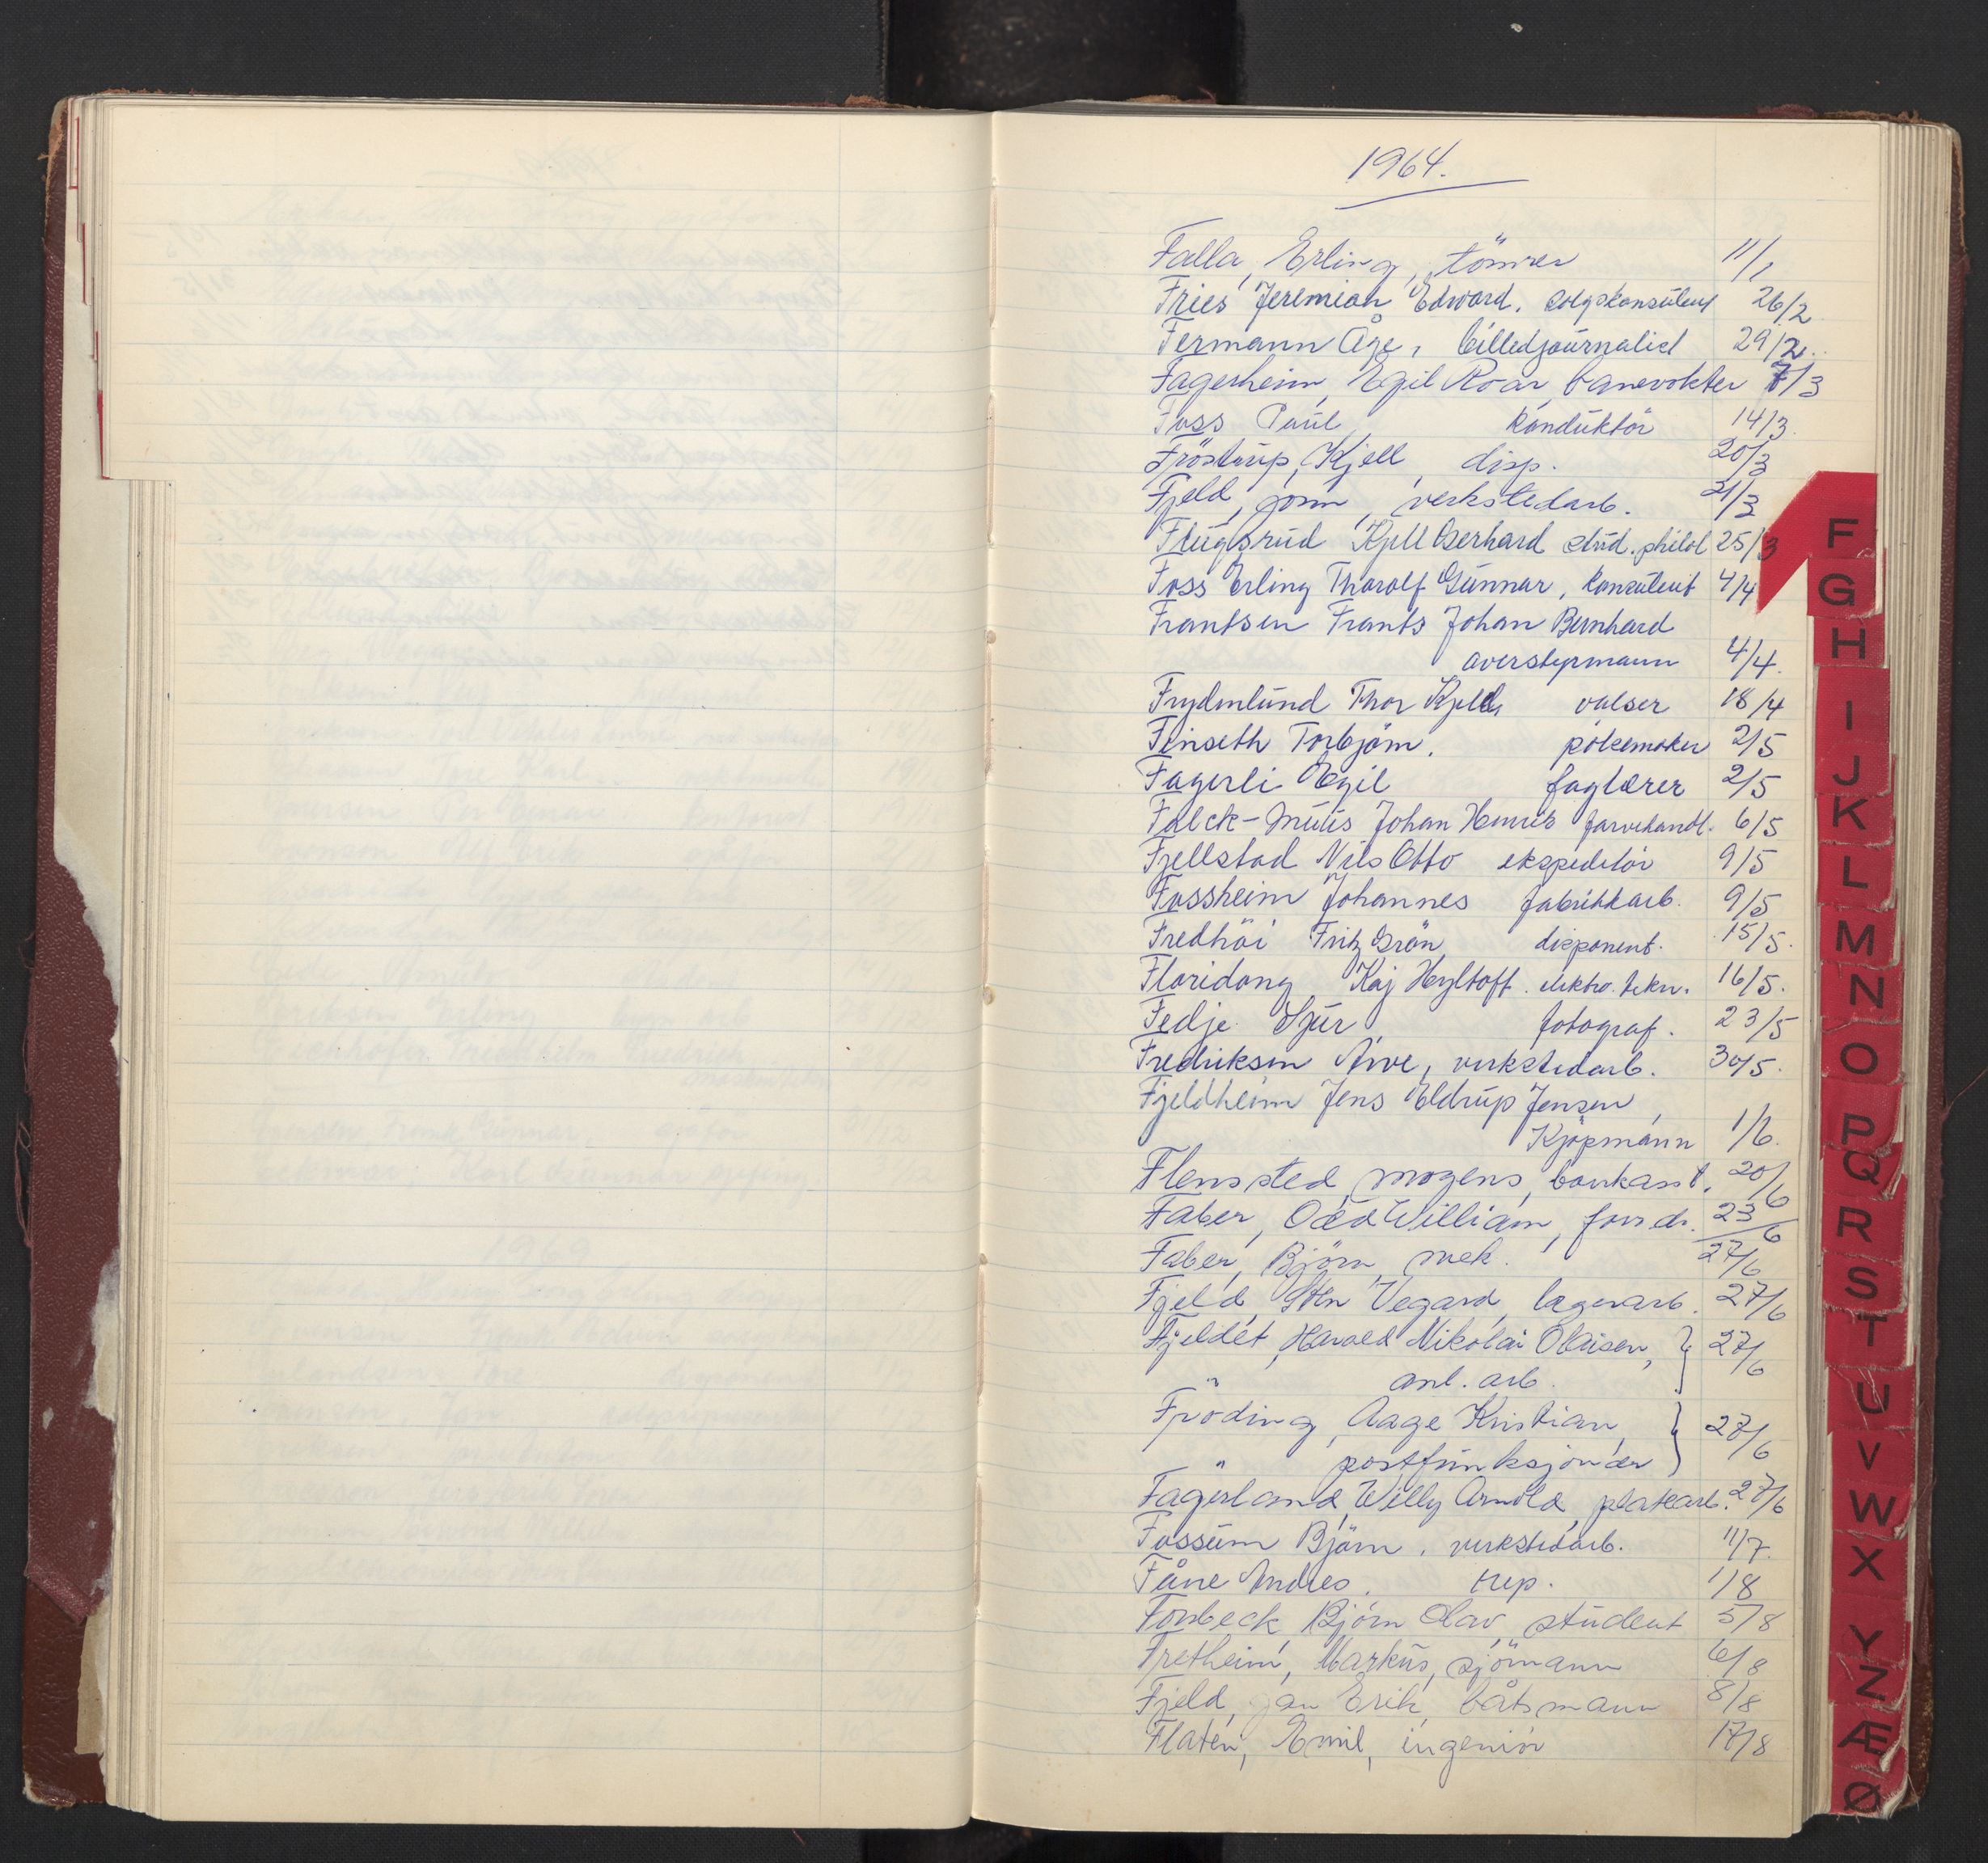 1964.
Falla, Erling, tömrer 11/1
Fries Jeremiah Edward. salgskonsulent 26/2
Fermann Åge, billedjournalist 29/2.
Fagerheim, Egil Roar, banevokter 7/3
Foss Paul konduktör 14/3.
Fröstrup, Kjell, disp. 20/3
Fjeld, John, verkstedarb. 21/3
Flugsrud Kjell Gerhard stud. philol 25/3
Foss Erling Thorolf Gunnar, konsulent 4/4
Frantsen Frants Johan Bernhard
overstyrmann 4/4.
Frydenlund Thor Kjeld, valser 18/4
Finseth Torbjörn. pölsemaker 2/5
Fagerli Egil faglærer 2/5
Falck-Muus Johan Henrik farvehandl. 6/5
Fjellstad Nils Otto ekspeditör 9/5
Fossheim Johannes fabrikkarb. 9/5
Fredhöi Fritz Grön disponent. 15/5.
Floridong Kaj Hyltoft. elektro. tekn. 16/5.
Fedje Sjur, fotograf. 23/5
Fredriksen Arve, verkstedarb. 30/5.
Fjeldheim Jens Eldrup Jensen,
Kjöpmann 1/6.
Flensted, Mogens, bankass. 20/6
Faber, Odd William, forr.dr. 23/6
Faber, Björn, mek. 27/6
Fjeld, Sten Vegard, lagerarb. 27/6
Fjeldet, Harald Nikolai Olaisen, } 27/6
" anl. arb.
Fröding, Aage Kristian, } 27/6
" postfunksjonær
Fagerland, Willy Arnold, platearb. 27/6
Fossum Björn, verkstedarb. 11/7.
Fåne Andres. rep. 1/8
Fonbeck Björn Olav, student 5/8
Fretheim, Markus, sjömann 6/8
Fjeld, Jan Erik, båtsmann 8/8
Flaten, Emil, ingeniör 17/8
F
G
H
I
J
K
L
M
N
O
P
Q
R
S
T
U
V
W
X
Y
Z
Æ
Ø